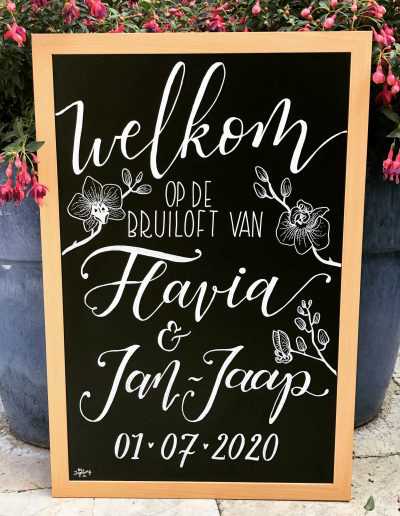 welkom
OP DE
BRUILOFT VAN
Flavia
&
Jan-Jaap
01·07·2020